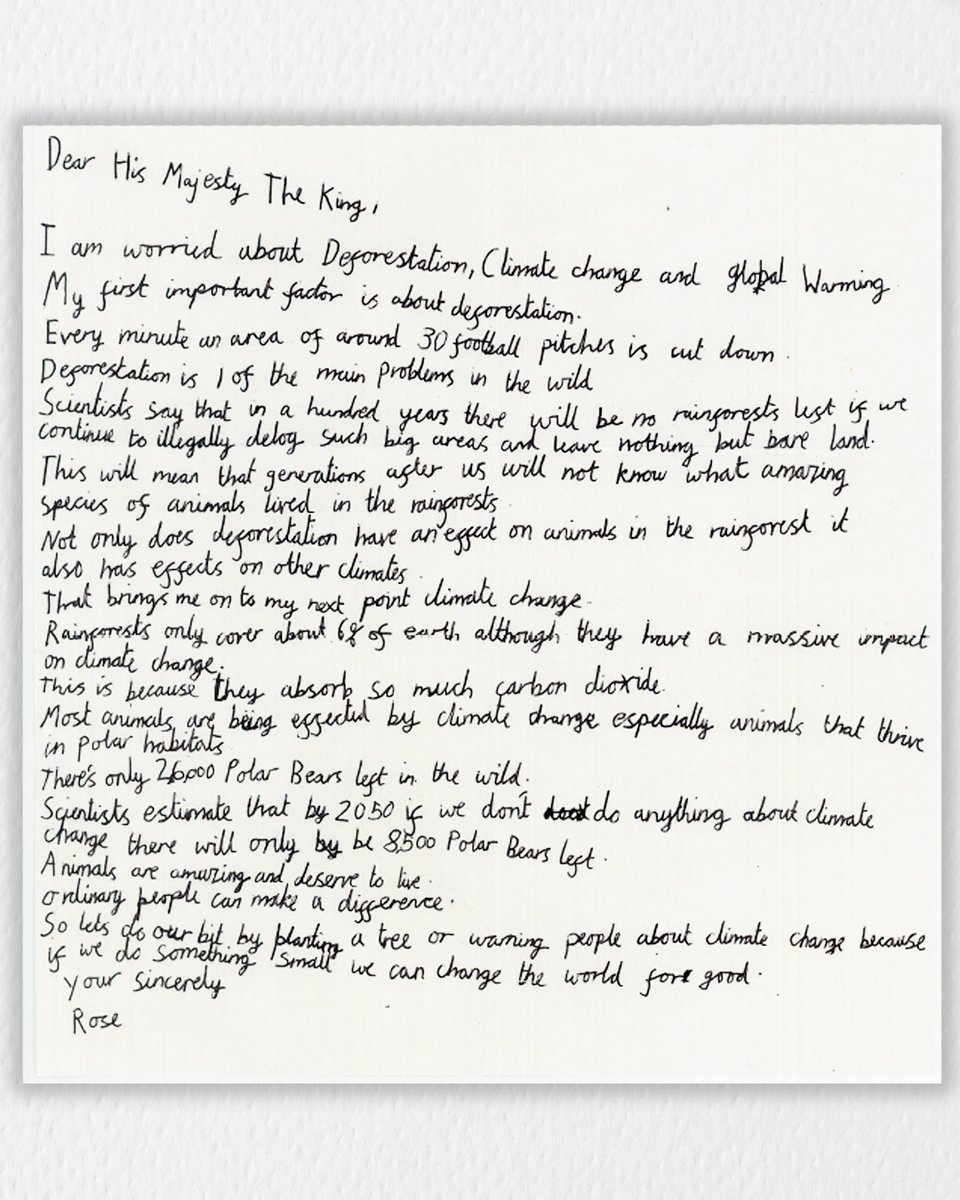 Dear His Majesty The King,
I am worried about Deforestation, Climate change and global Warming.
My first important factor is about deforestation.
Every minute an area of around 30 football pitches is cut down.
Deforestation is 1 of the main problems in the wild
Scientists say that in a hundred years there will be no rainforests left if we
continue to illegally delog such big areas and leave nothing but bare land.
This will mean that generations after us will not know what amazing
species of animals lived in the rainforests.
Not only does deforestation have an effect on animals in the rainforest it
also has effects on other climates.
That brings me on to my next point climate change.
Rainforests only cover about 6% of earth although they have a massive impact
on climate change.
This is because they absorb so much carbon dioxide.
Most animals are being effected by climate change especially animals that thrive
in polar habitats
There's only 26,000 Polar Bears left in the wild.
Scientists estimate that by 2050 if we don't do anything about climate
change there will only be 8,500 Polar Bears left.
Animals are amazing and deserve to live.
ordinary people can make a difference.
So lets do our bit by planting a tree or warning people about climate change because
if we do something small we can change the world for good.
your sincerely
Rose